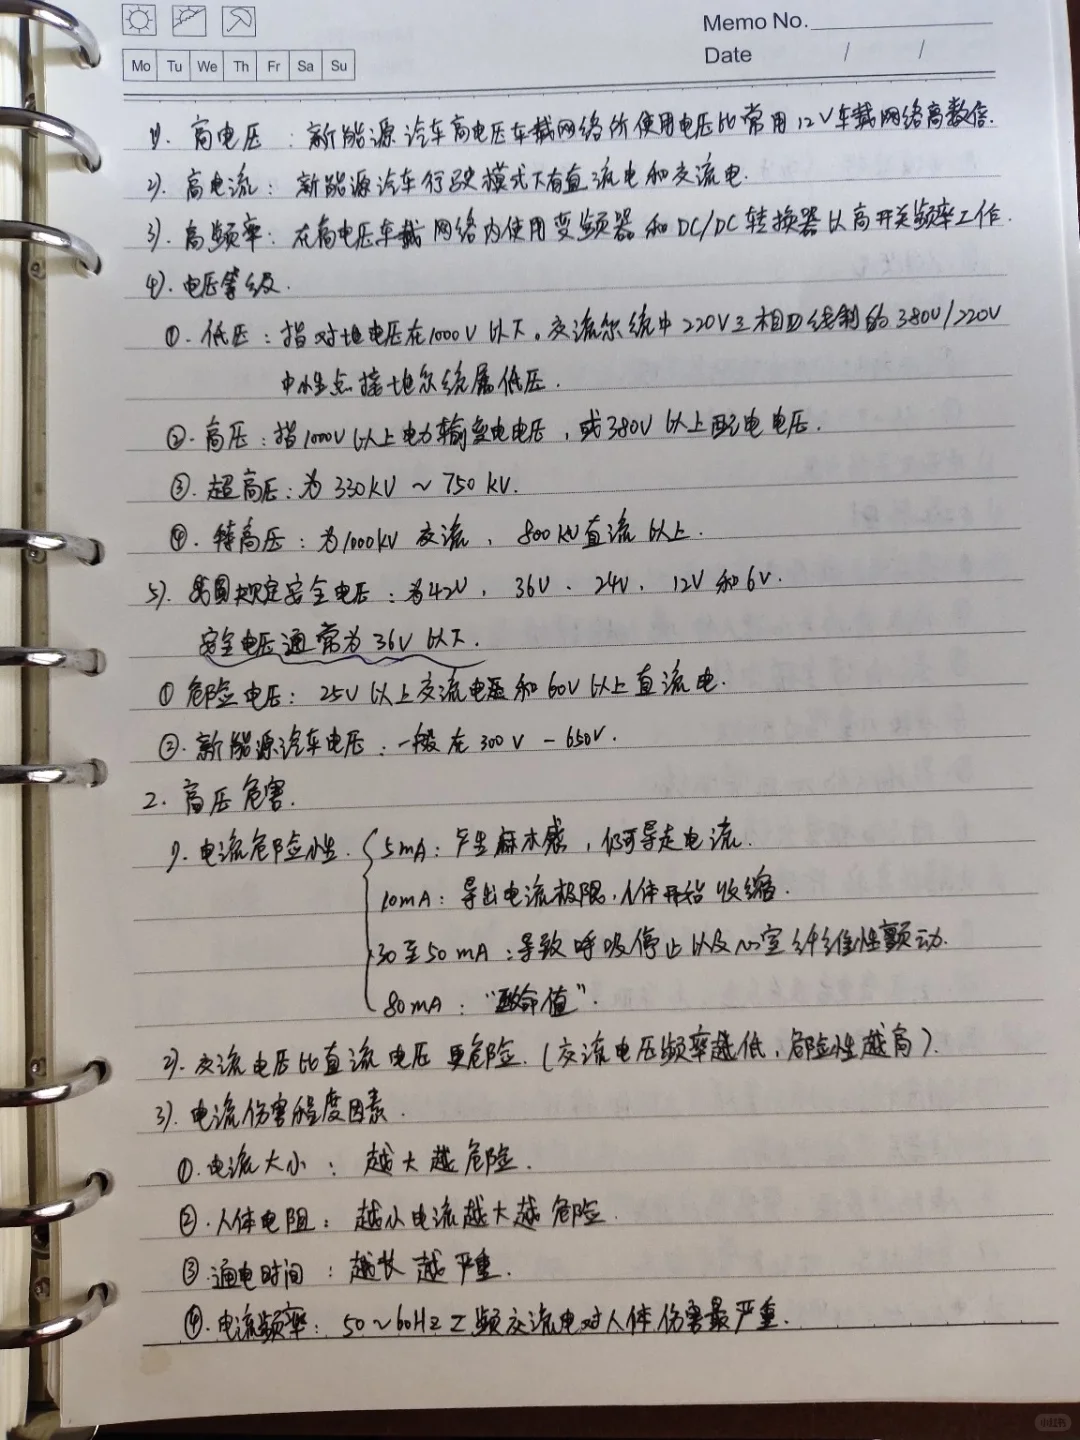 Memo No.
Mo Tu We Th Fr Sa Su
Date / /
1). 高电压：新能源汽车高电压车载网络所使用电压比常用12V车载网络高数倍.
2). 高电流：新能源汽车行驶模式下有直流电和交流电.
3). 高频率：在高电压车载网络内使用变频器和DC/DC转换器以高开关频率工作.
4). 电压等级.
①. 低压：指对地电压在1000V以下。交流系统中220V三相四线制的380V/220V
中性点接地系统属低压.
②. 高压：指1000V以上电力输变电电压，或380V以上配电电压.
③. 超高压：为330KV～750KV.
④. 特高压：为1000KV交流、800KV直流以上.
5). 我国规定安全电压：为42V、36V、24V、12V和6V.
安全电压通常为36V以下.
① 危险电压：25V以上交流电压和60V以上直流电.
②. 新能源汽车电压：一般在300V－650V.
2. 高压危害.
1). 电流危险性. 5mA：产生麻木感，仍可导走电流.
10mA：导出电流极限，人体开始收缩.
30至50mA：导致呼吸停止以及心室纤维性颤动.
80mA：“致命值”.
2). 交流电压比直流电压更危险.（交流电压频率越低，危险性越高）.
3). 电流伤害程度因素.
①. 电流大小：越大越危险.
②. 人体电阻：越小电流越大越危险.
③. 通电时间：越长越严重.
④. 电流频率：50～60HZ工频交流电对人体伤害最严重.
小红书